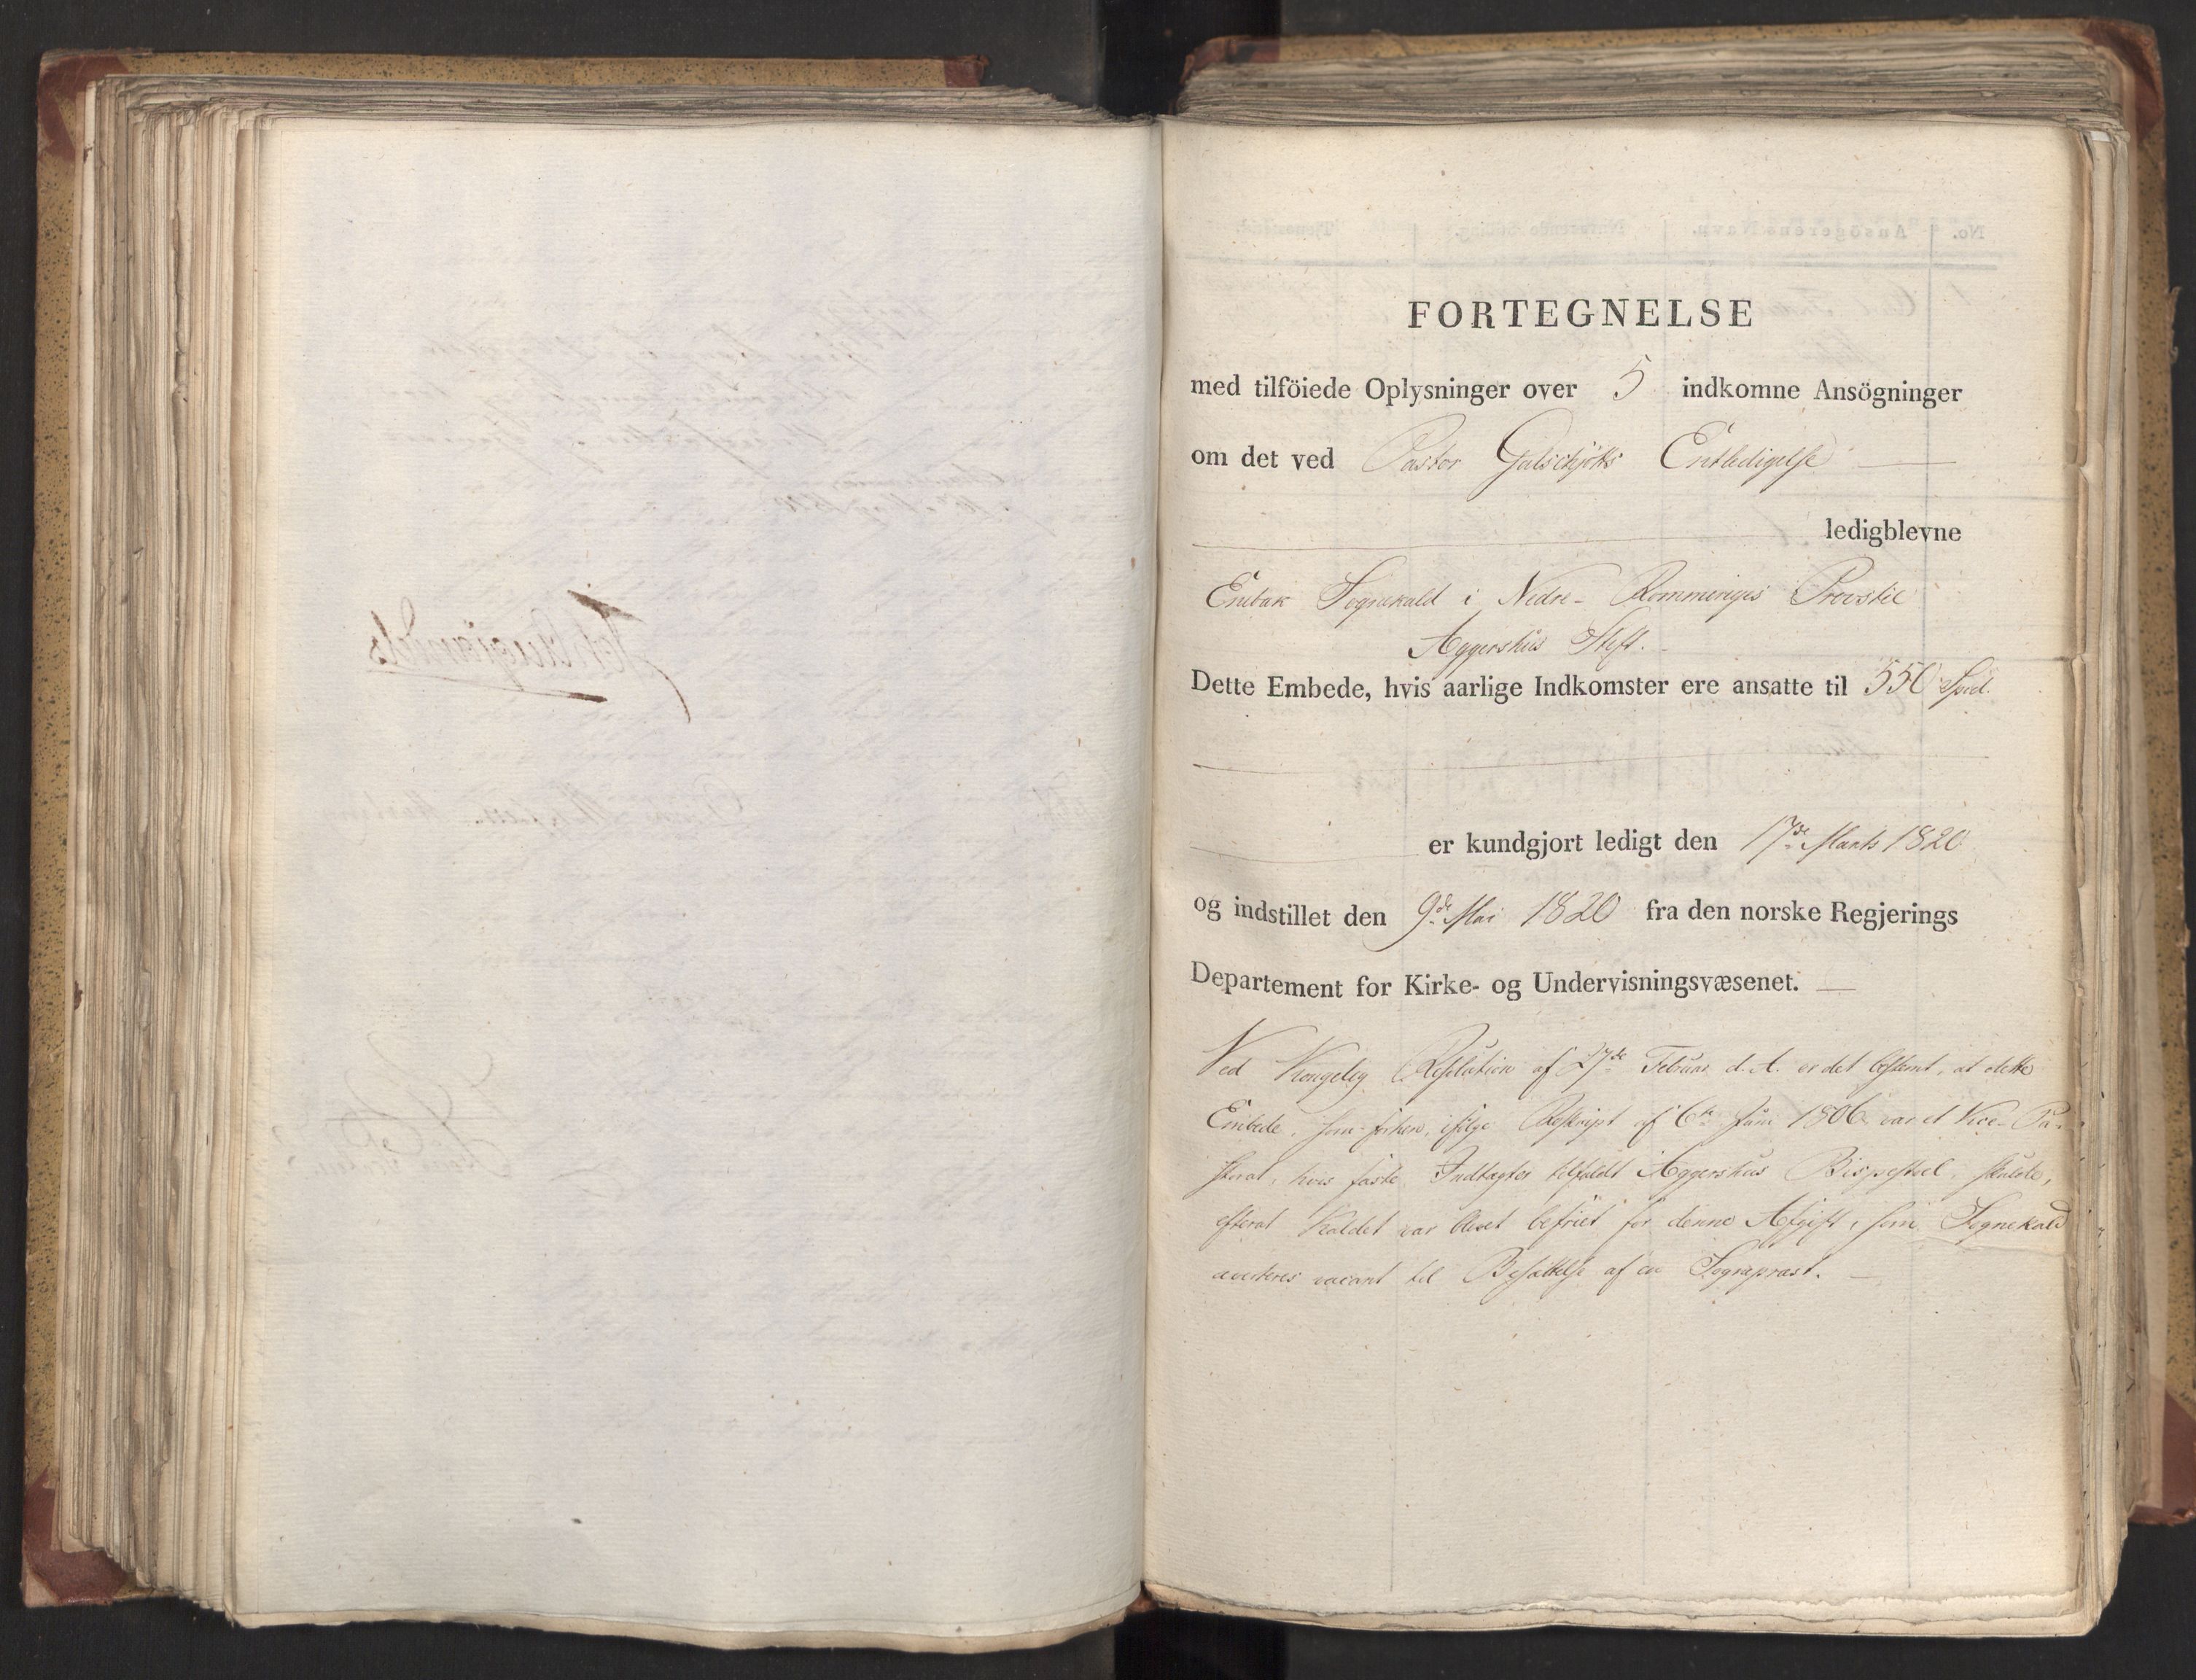 FORTEGNELSE
med tilföiede Oplysninger over 5 indkomne Ansögninger
om det ved Pastor Galschjøtts Entledigelse
ledigblevne
Enebak Sognekald i Nedre-Rommeriges Provstie
Aggershus Stift.
Dette Embede, hvis aarlige Indkomster ere ansatte til 550 Spd.
er kundgjort ledigt den 17de Marts 1820
og indstillet den 9de Mai 1820 fra den norske Regjerings
Departement for Kirke- og Undervisningsvæsenet.
Ved Kongelig Resolution af 27de Februar d. A. er det bestemt, at dette
Embede, som forhen, ifølge Reskript af 6te Juni 1806 var et Vice-Pa-
storat, hvis faste Indtægter tilfaldt Aggershus Bispestoel, skulde,
efterat Kaldet var blevet befriet for denne Afgift, som Sognekald
averteres vacant til Besættelse af en Sognepræst.